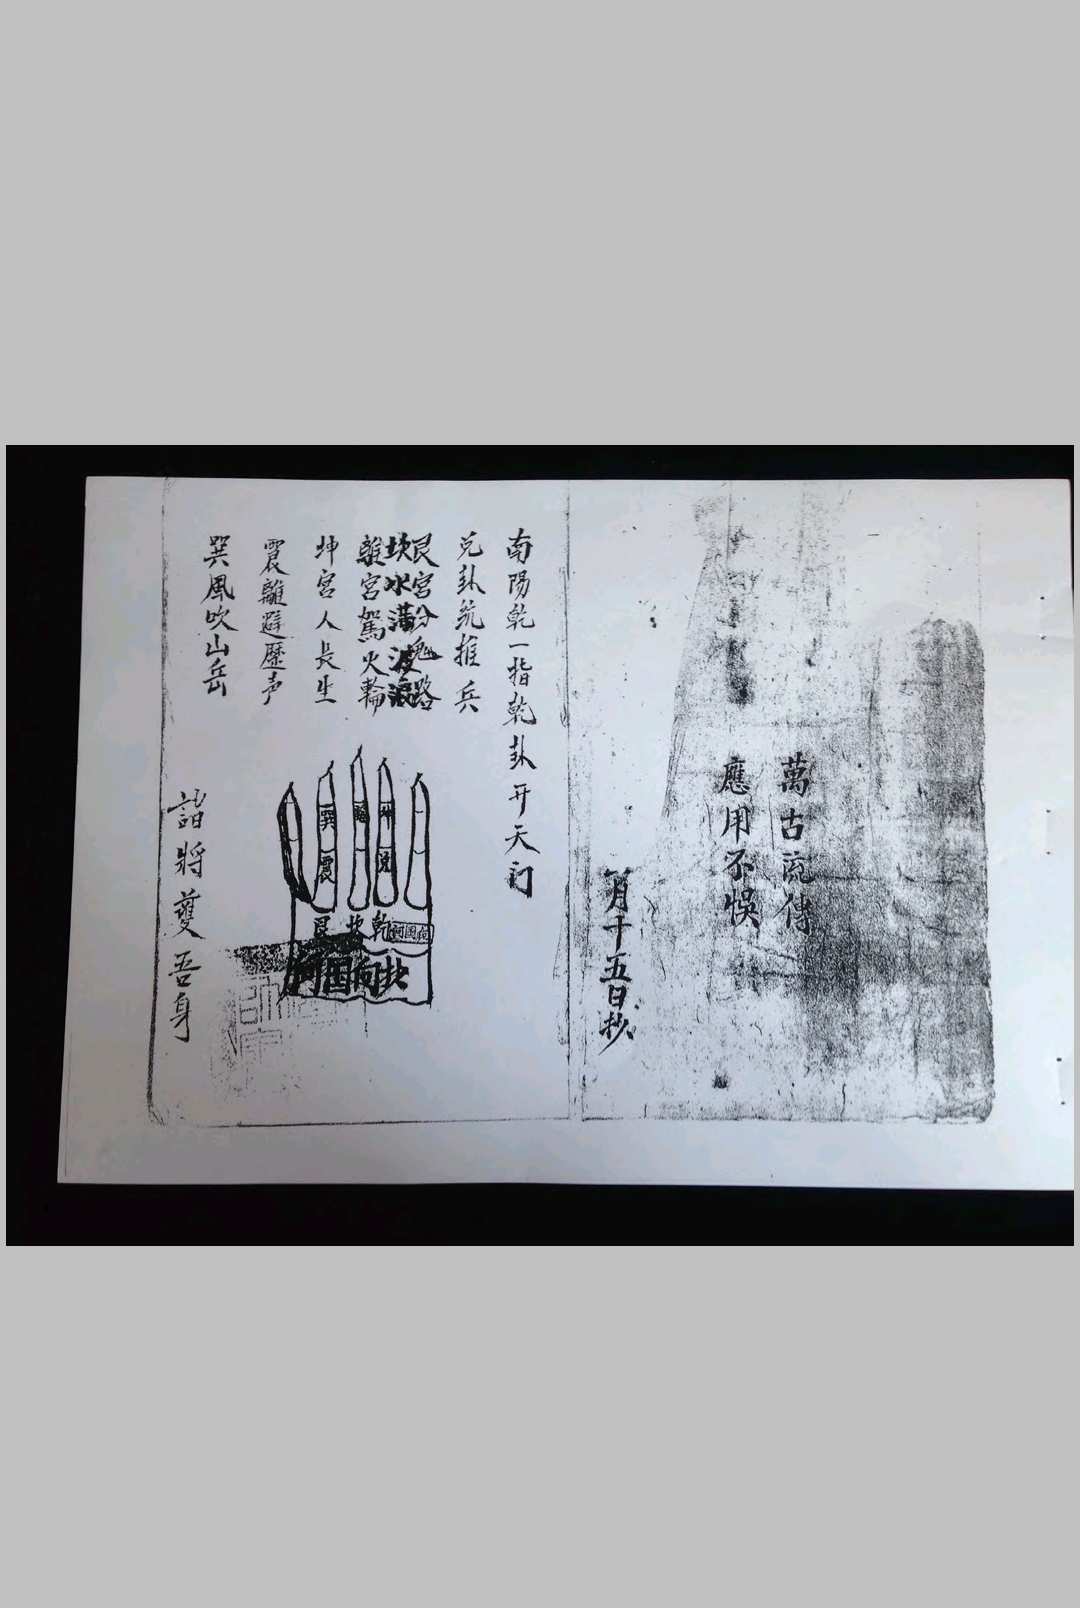 萬古流傳
應用不悞
月十五日抄
南陽乾一指乾卦开天门
兑卦统推兵
艮宫分鬼路
坎水满波浪
離宮駕火輪
坤宫人長生
震離避歷声
巽風吹山岳
諸將護吾身
巽
坤
震
兑
艮
坎
乾